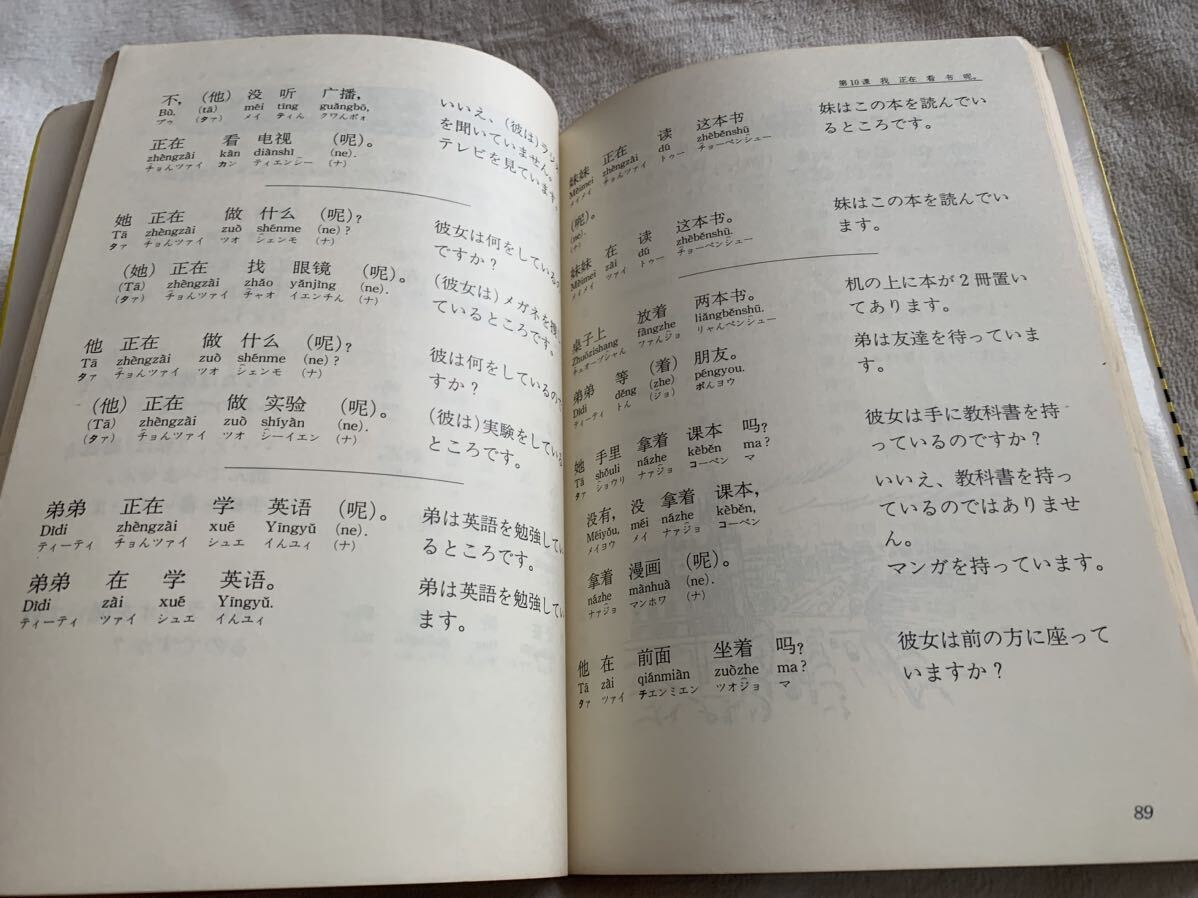 不，(他) 没 听 广播，
Bù, (tā) méi tīng guǎngbō,
プゥ (タァ) メイ ティん クワんポォ
いいえ、(彼は)ラジ
を聞いていません。
正在 看 电视 (呢)。
zhèngzài kàn diànshì (ne).
チョんツァイ カン ティエンシー (ナ)
テレビを見ています
她 正在 做 什么 (呢)？
Tā zhèngzài zuò shénme (ne)?
タァ チョんツァイ ツオ シェンモ (ナ)
彼女は何をしている
ですか？
(她) 正在 找 眼镜 (呢)。
(Tā) zhèngzài zhǎo yǎnjìng (ne).
(タァ) チョんツァイ チャオ イエンチん (ナ)
(彼女は)メガネを
ているところです。
他 正在 做 什么 (呢)？
Tā zhèngzài zuò shénme (ne)?
タァ チョんツァイ ツオ シェンモ (ナ)
彼は何をしているの
すか？
(他) 正在 做 实验 (呢)。
(Tā) zhèngzài zuò shíyàn (ne).
(タァ) チョんツァイ ツオ シーイエン (ナ)
(彼は)実験をしている
ところです。
弟弟 正在 学 英语 (呢)。
Dìdi zhèngzài xué Yīngyǔ (ne).
ティーティ チョんツァイ シュエ イんユィ (ナ)
弟は英語を勉強してい
るところです。
弟弟 在 学 英语。
Dìdi zài xué Yīngyǔ.
ティーティ ツァイ シュエ イんユィ
弟は英語を勉強してい
ます。
第10课 我 正在 看 书 呢。
妹妹 正在 读 这本书
Mèimei zhèngzài dú zhèběnshū
メイメイ チョんツァイ トゥー チョーペンシュー
(呢)。
(ne).
(ナ)
妹はこの本を読んでい
るところです。
妹妹 在 读 这本书。
Mèimei zài dú zhèběnshū.
メイメイ ツァイ トゥー チョーペンシュー
妹はこの本を読んでい
ます。
桌子上 放着 两本书。
Zhuōzishang fàngzhe liǎngběnshū.
チュオーヅシャん ファんジョ リャんペンシュー
机の上に本が2冊置い
てあります。
弟弟 等 (着) 朋友。
Dìdi děng (zhe) péngyou.
ティーティ トん (ジョ) ポんヨウ
弟は友達を待っていま
す。
她 手里 拿着 课本 吗？
Tā shǒuli názhe kèběn ma?
タァ ショウリ ナァジョ コーペン マ
彼女は手に教科書を持
っているのですか？
没有，没 拿着 课本，
Méiyǒu, méi názhe kèběn,
メイヨウ メイ ナァジョ コーペン
いいえ、教科書を持っ
ているのではありませ
ん。
拿着 漫画 (呢)。
názhe mànhuà (ne).
ナァジョ マンホワ (ナ)
マンガを持っています。
他 在 前面 坐着 吗？
Tā zài qiánmiàn zuòzhe ma?
タァ ツァイ チエンミエン ツオジョ マ
彼女は前の方に座って
いますか？
89